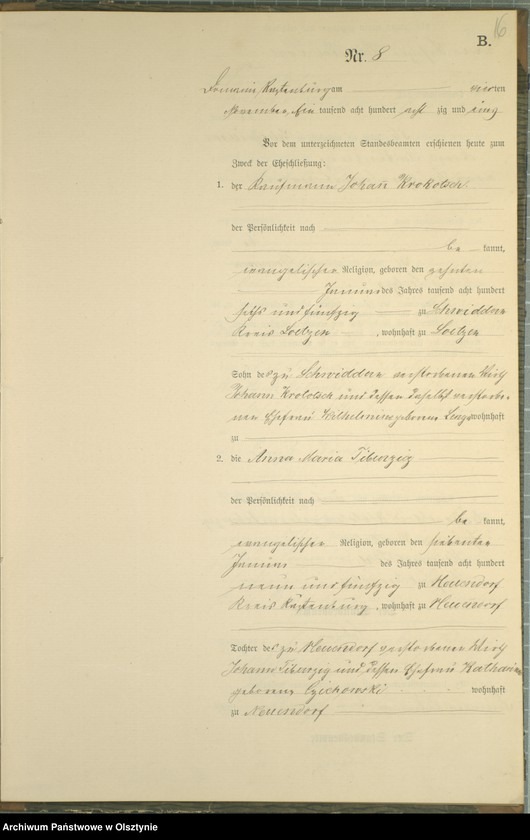 16
B.
Nr. 8
Domaine Rastenburg am vierten
November ein tausend acht hundert acht zig und eins
Vor dem unterzeichneten Standesbeamten erschienen heute zum
Zweck der Eheschließung:
1. der Kaufmann Johann Krokotsch
der Persönlichkeit nach
be kannt,
evangelischer Religion, geboren den zehnten
Januar des Jahres tausend acht hundert
sechs und fünfzig zu Schwiddern
Kreis Loetzen, wohnhaft zu Loetzen
Sohn des zu Schwiddern verstorbenen Wirth
Johann Krokotsch und dessen daselbst verstorbe-
nen Ehefrau Wilhelmine geborene wohnhaft
zu
2. die Anna Maria Tiburzig
der Persönlichkeit nach
be kannt,
evangelischer Religion, geboren den siebenten
des Jahres tausend acht hundert
neun und fünfzig zu Neuendorf
Kreis Rastenburg, wohnhaft zu Neuendorf
Tochter des zu Neuendorf verstorbenen Wirth
Johann Tiburzig und dessen Ehefrau Katharine
geborene Czichowski wohnhaft
zu Neuendorf
Archiwum Państwowe w Olsztynie